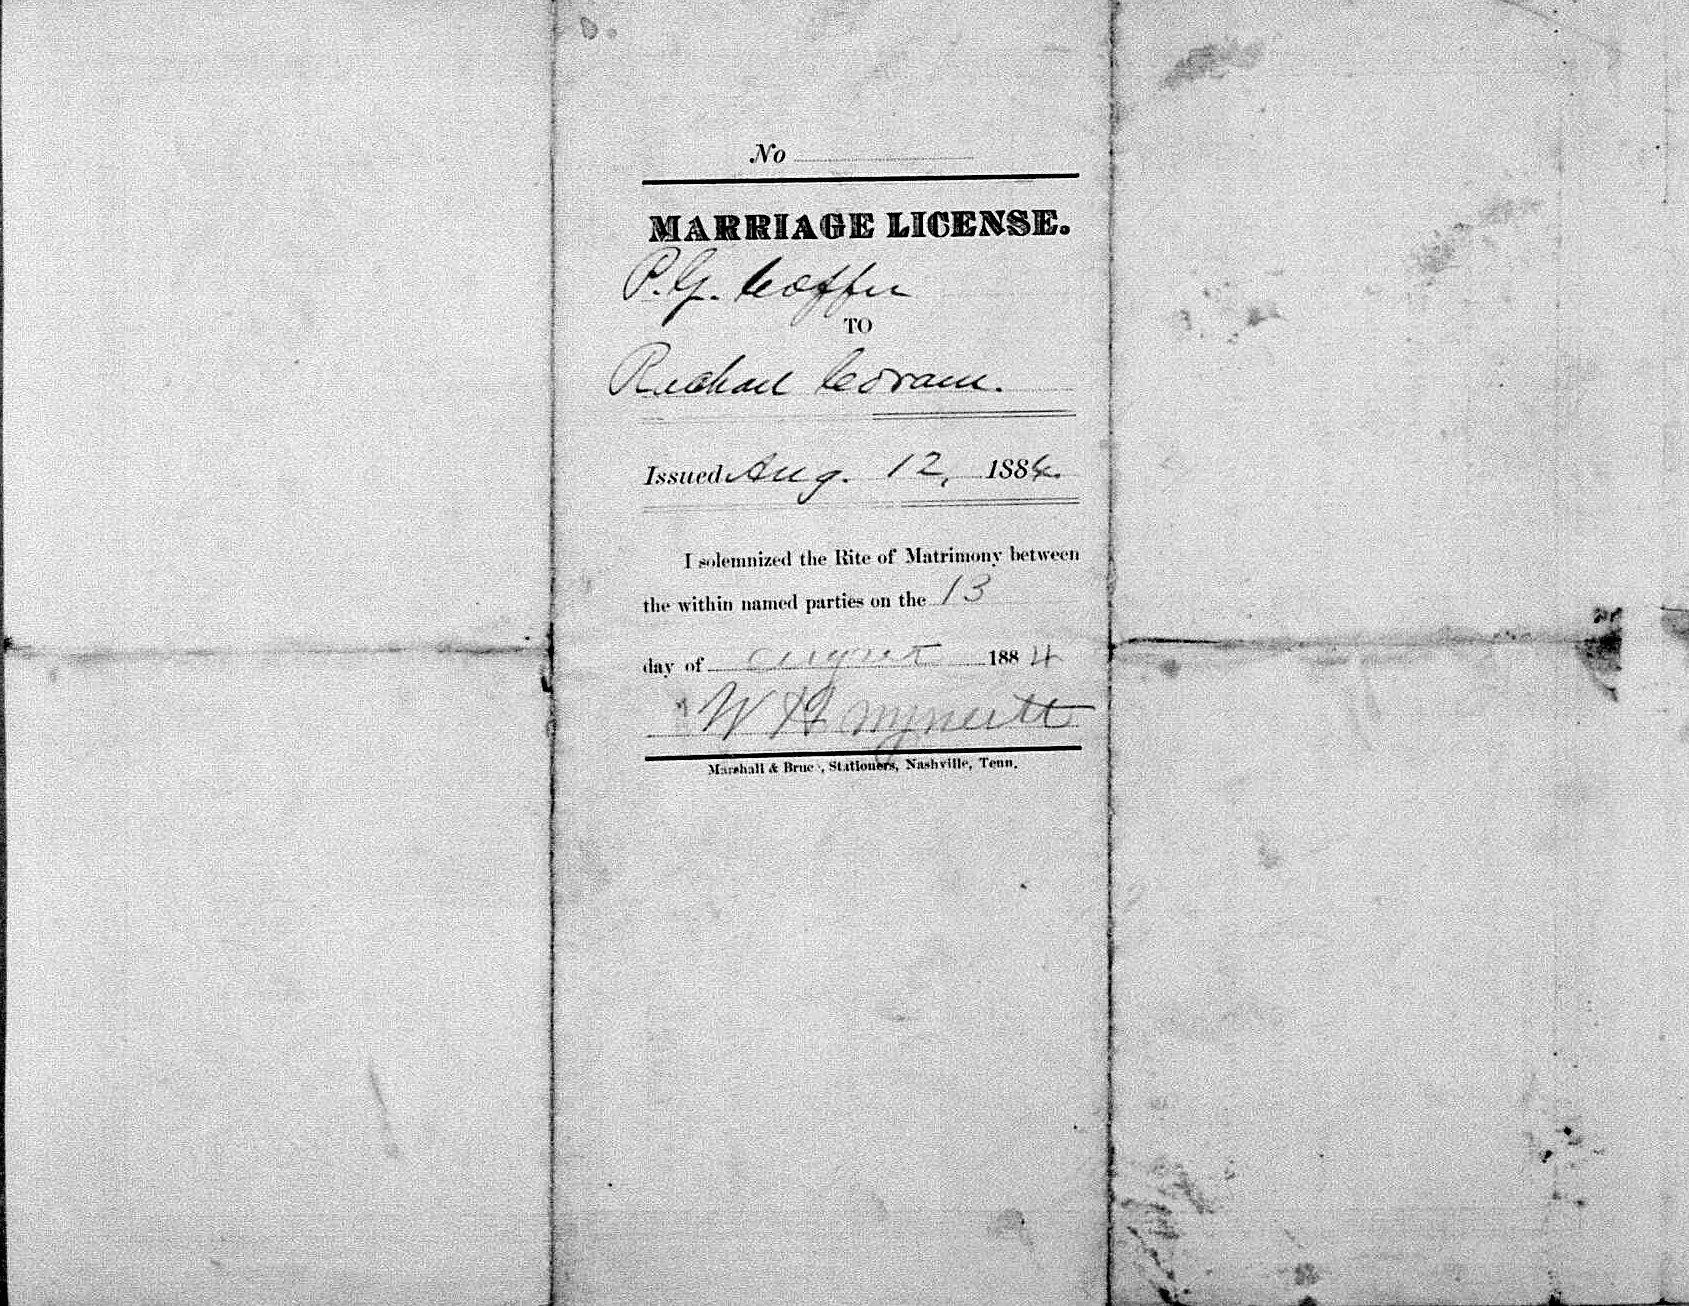 No
MARRIAGE LICENSE.
P. G. Coffer
TO
Rachael Coram.
Issued Aug. 12, 1884.
I solemnized the Rite of Matrimony between
the within named parties on the 13
day of august 1884
W H
Marshall & Bruce, Stationers, Nashville, Tenn.